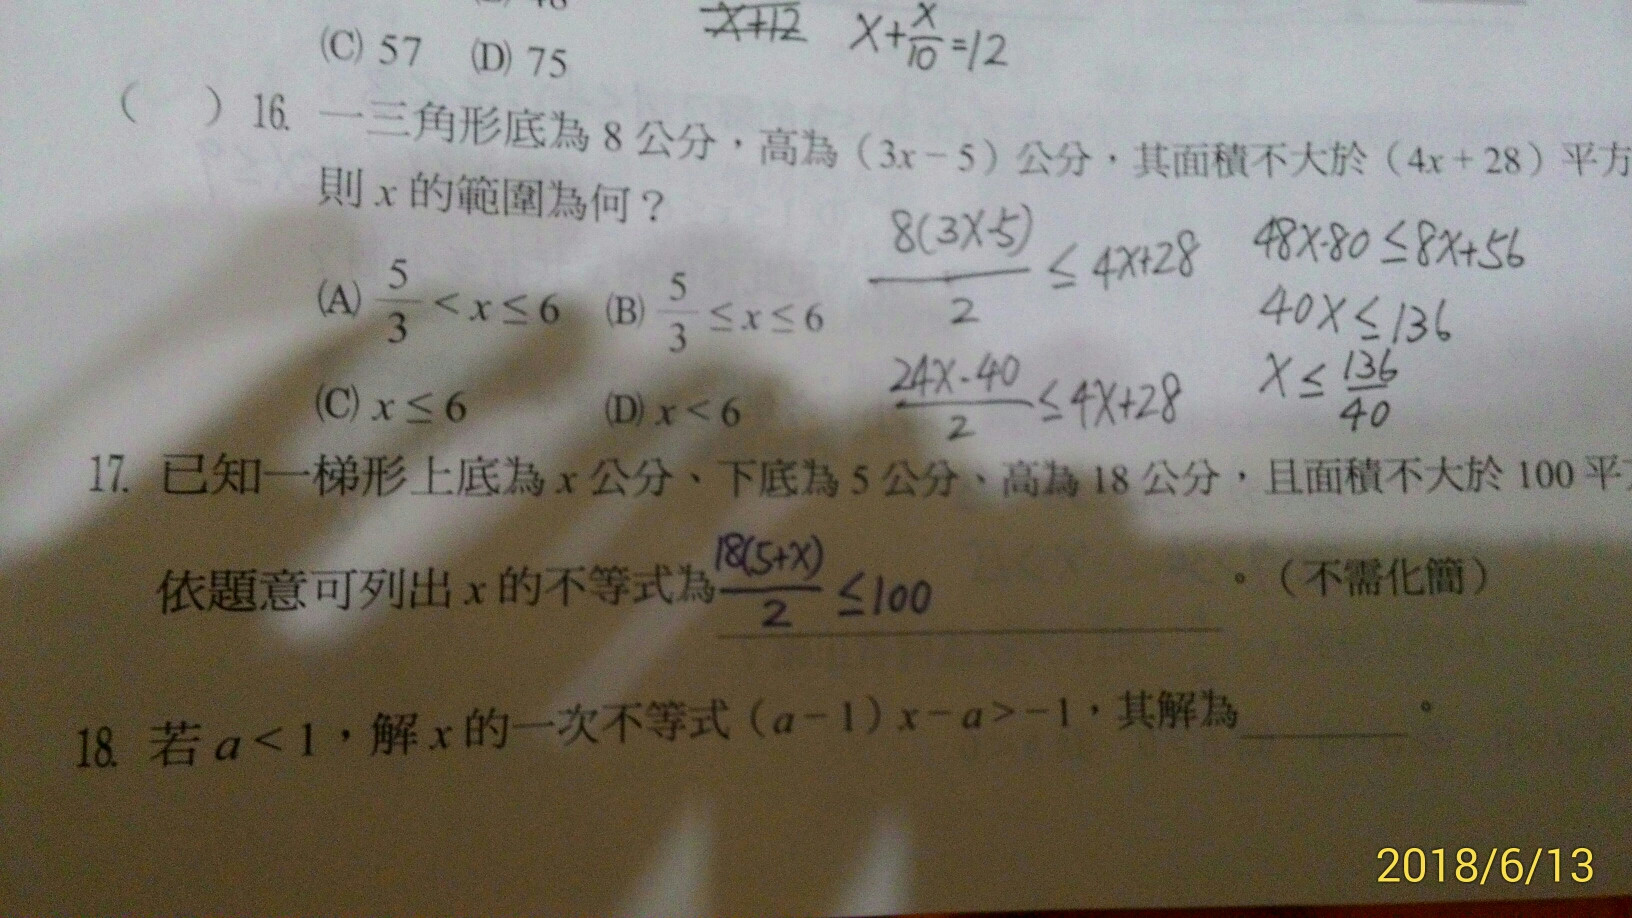 (C) 57 (D) 75
x+12 x+x/10=12
( ) 16. 一三角形底為 8 公分，高為（3x－5）公分，其面積不大於（4x＋28）平方
則 x 的範圍為何？
(A) 5/3 < x ≤ 6 (B) 5/3 ≤ x ≤ 6
(C) x ≤ 6 (D) x < 6
8(3x-5)/2 ≤ 4x+28
24x-40/2 ≤ 4x+28
48x-80 ≤ 8x+56
40x ≤ 136
x ≤ 136/40
17. 已知一梯形上底為 x 公分、下底為 5 公分、高為 18 公分，且面積不大於 100 平
依題意可列出 x 的不等式為 18(5+x)/2 ≤100 。（不需化簡）
18. 若 a < 1，解 x 的一次不等式（a－1）x－a>－1，其解為 。
2018/6/13